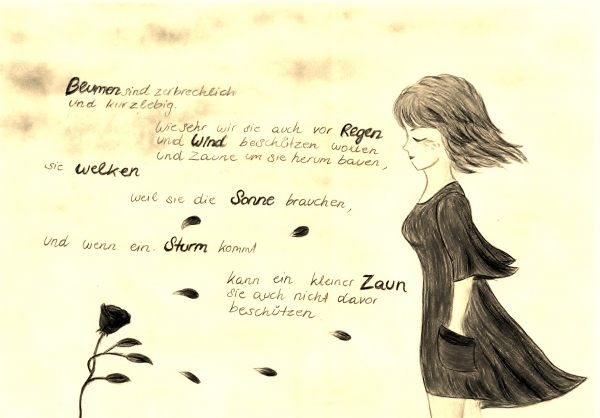 Blumen sind zerbrechlich
und kurzlebig.
Wie sehr wir sie auch vor Regen
und Wind beschützen wollen
und Zäune um sie herum bauen,
sie welken
weil sie die Sonne brauchen,
und wenn ein Sturm kommt
kann ein kleiner Zaun
sie auch nicht davor
beschützen.